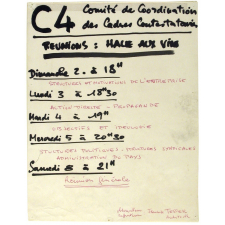 C4 Comité de Coordination
des Cadres Contestataires
REUNIONS : HALLE AUX VINS
Dimanche 2. à 18H
STRUCTURES ET MUTATIONS DE L'ENTREPRISE
Lundi 3 à 18H30
ACTION DIRECTE - PROPAGANDE
Mardi 4 à 19H
OBJECTIFS ET IDEOLOGIE
Mercredi 5 à 20H30
STRUCTURES POLITIQUES - STRUCTURES SYNDICALES
ADMINISTRATION DU PAYS
Samedi 8 à 21H
Réunion Générale